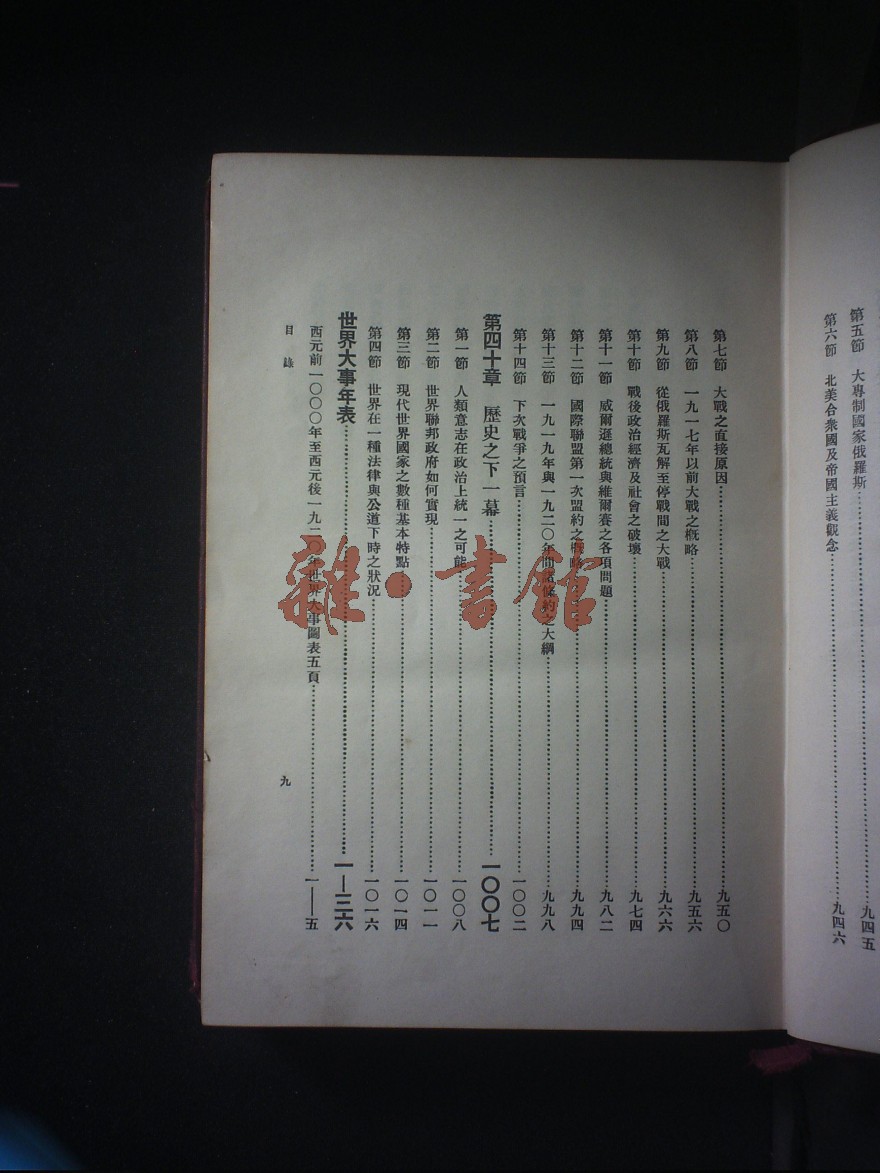 第五節　大專制國家俄羅斯……九四五
第六節　北美合衆國及帝國主義觀念……九四六
第七節　大戰之直接原因……九五〇
第八節　一九一七年以前大戰之概略……九五六
第九節　從俄羅斯瓦解至停戰間之大戰……九六六
第十節　戰後政治經濟及社會之破壞……九七四
第十一節　威爾遜總統與維爾賽之各項問題……九八二
第十二節　國際聯盟第一次盟約之概略……九九四
第十三節　一九一九年與一九二〇年間諸條約之大綱……九九八
第十四節　下次戰爭之預言……一〇〇二
第四十章　歷史之下一幕……一〇〇七
第一節　人類意志在政治上統一之可能……一〇〇八
第二節　世界聯邦政府如何實現……一〇一一
第三節　現代世界國家之數種基本特點……一〇一四
第四節　世界在一種法律與公道下時之狀況……一〇一六
世界大事年表……一—三六
西元前一〇〇〇年至西元後一九二〇年世界大事圖表五頁……一——五
目錄
九
雜·書館